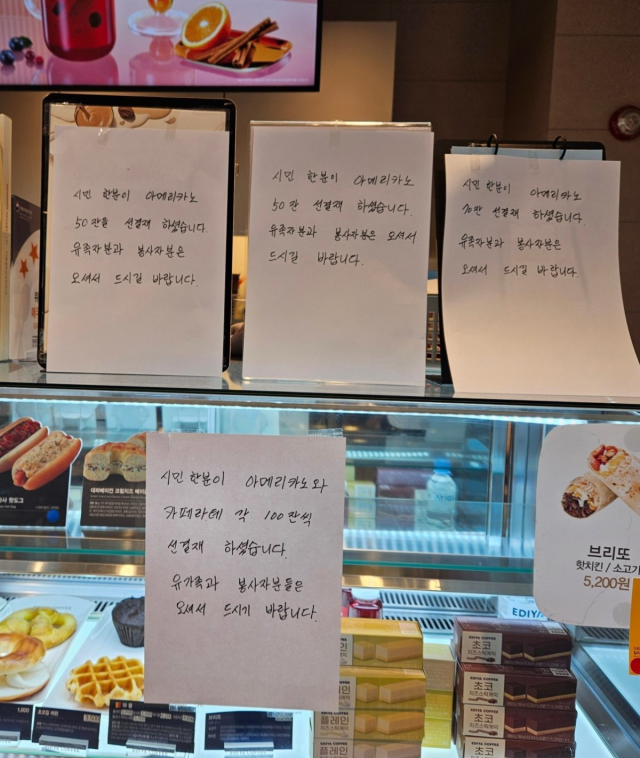 시민 한분이 아메리카노
50잔을 선결재 하셨습니다.
유족자분과 봉사자분은
오셔서 드시길 바랍니다.
시민 한분이 아메리카노
50잔 선결재 하셨습니다.
유족자분과 봉사자분은 오셔서
드시길 바랍니다.
시민 한분이 아메리카노
70잔 선결재 하셨습니다.
유족자분과 봉사자분은
오셔서 드시길 바랍니다.
시민 한분이 아메리카노와
카페라떼 각 100잔씩
선결재 하셨습니다.
유가족과 봉사자분들은
오셔서 드시기 바랍니다.
브리또
핫치킨 / 소고기
5,200원
EDIYA
초코
초코
초코
플레인
플레인